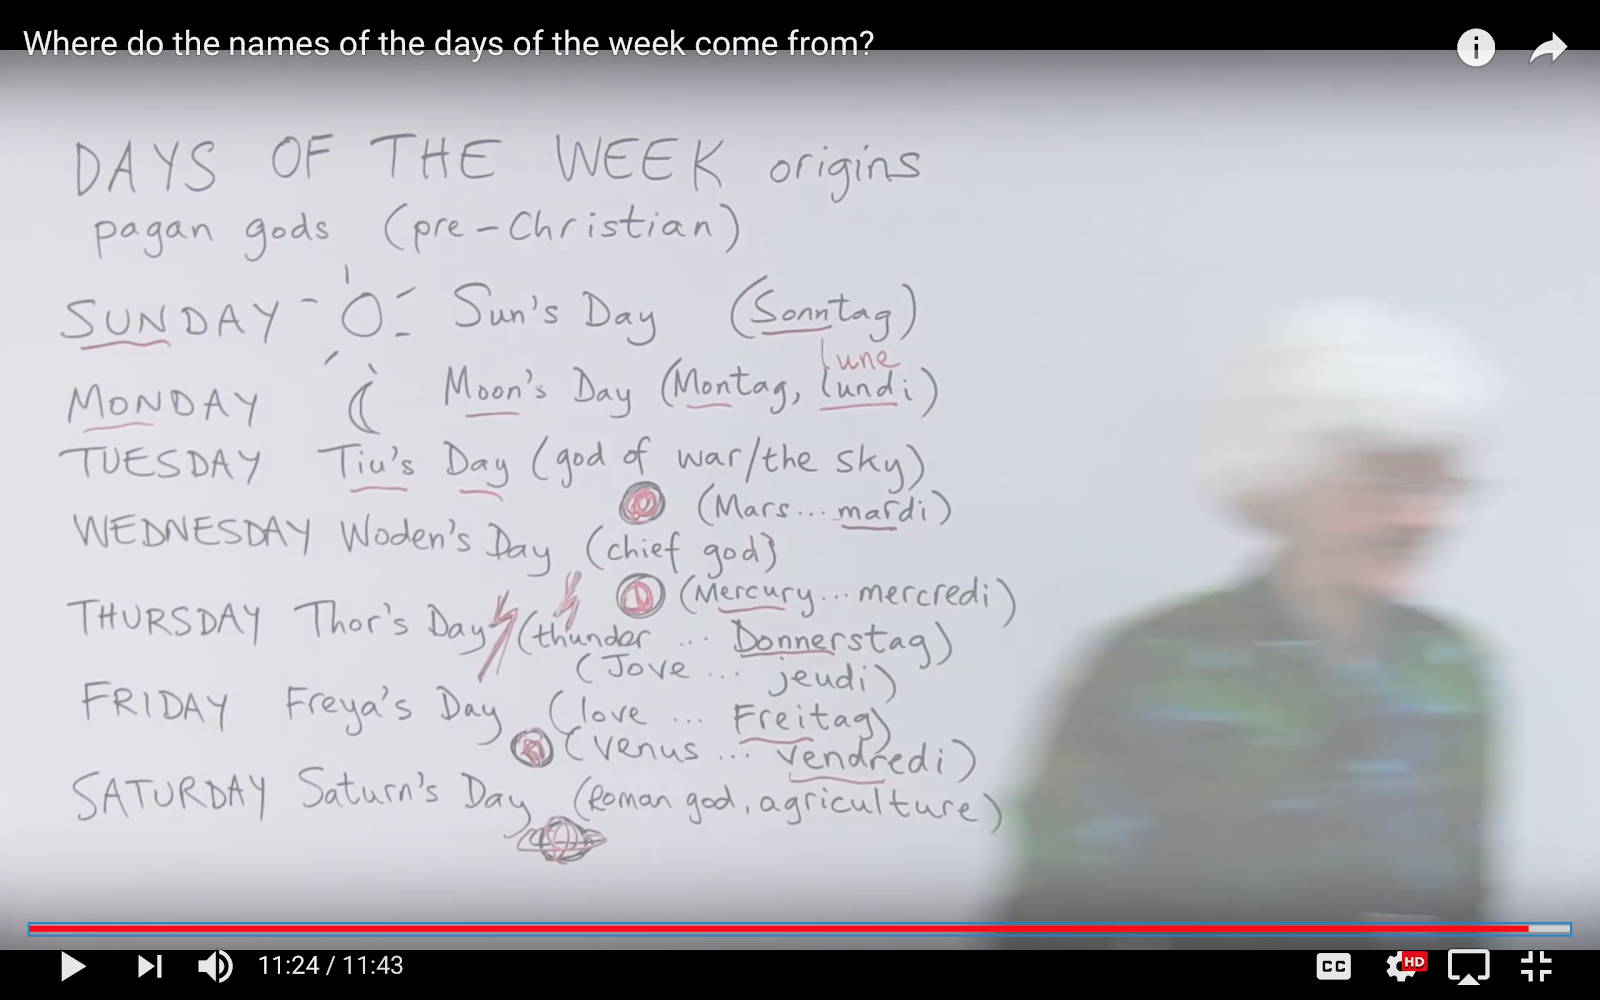 Where do the names of the days of the week come from?
DAYS OF THE WEEK origins
pagan gods (pre-Christian)
SUNDAY Sun's Day (Sonntag)
lune
MONDAY Moon's Day (Montag, lundi)
TUESDAY Tiu's Day (god of war/the sky)
(Mars... mardi)
WEDNESDAY Woden's Day (chief god)
(Mercury... mercredi)
THURSDAY Thor's Day (thunder ... Donnerstag)
(Jove ... jeudi)
FRIDAY Freya's Day (love ... Freitag)
(Venus ... vendredi)
SATURDAY Saturn's Day (Roman god, agriculture)
11:24 / 11:43
CC
HD